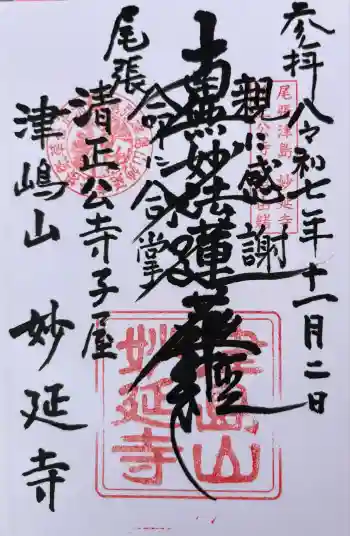 参拝 令和七年十一月二日
親に感謝
南無妙法蓮華経
命に合掌
尾張
清正公寺子屋
津嶋山 妙延寺
尾張津島 妙延寺
津島山
妙延寺